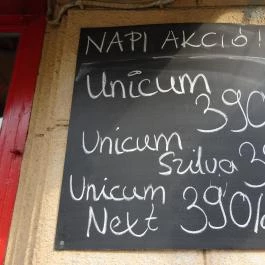 NAPI AKCIÓ!
Unicum
390
Unicum
Szilva 39
Unicum
Next 390